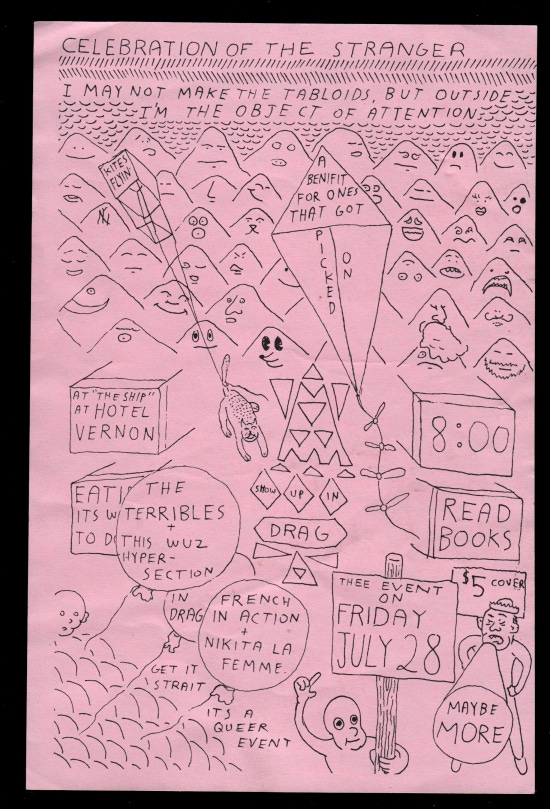 CELEBRATION OF THE STRANGER
I MAY NOT MAKE THE TABLOIDS, BUT OUTSIDE
I'M THE OBJECT OF ATTENTION
KITES
FLYIN'
A
BENIFIT
FOR ONES
THAT GOT
PICKED
ON
AT "THE SHIP"
AT HOTEL
VERNON
8:00
SHOW UP IN
DRAG
EATI
ITS W
TO D
THE
TERRIBLES
+
THIS WUZ
HYPER-
SECTION
READ
BOOKS
IN
DRAG
FRENCH
IN ACTION
+
NIKITA LA
FEMME
THEE EVENT
ON
FRIDAY
JULY 28
$5 COVER
MAYBE
MORE
GET IT
STRAIT
IT'S A
QUEER
EVENT